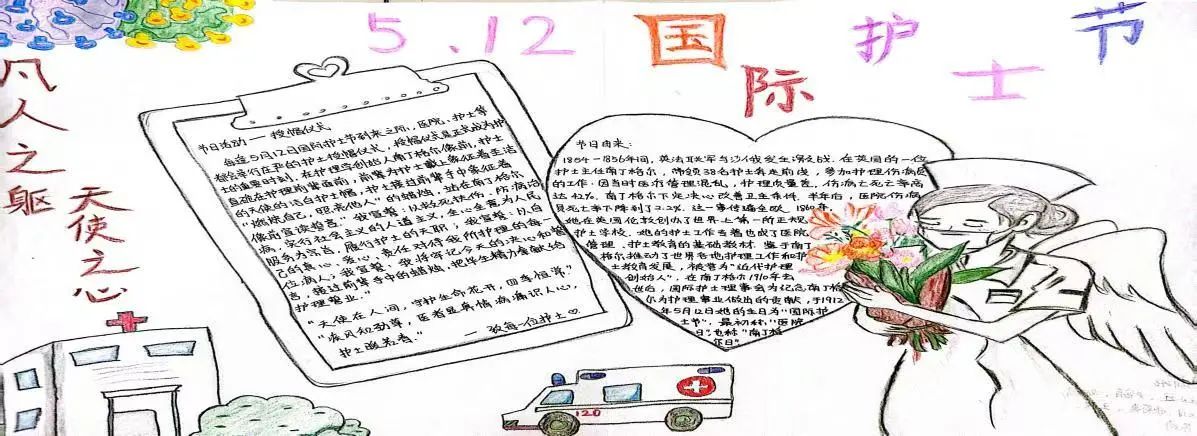 5.12国际护士节
凡人之躯
天使之心
节日活动——授帽仪式
每逢5月12日国际护士节到来之际，医院、护士学
都会举行庄严的护士授帽仪式，授帽仪式是正式成为护
士的重要时刻，在护理学创始人南丁格尔像前，护士
直跪在护理前辈面前，前辈为护士戴上象征着圣洁
的天使的洁白护士帽，护士接过前辈手中象征着
"燃烧自己，照亮他人"的蜡烛，站在南丁格尔
像前宣读誓言："我宣誓：以救死扶伤、防病治
病，实行社会主义的人道主义，全心全意为人民
服务为宗旨，履行护士的天职；我宣誓：以自
己的真心、爱心、责任对待我所护理的每
位病人；我宣誓：我将牢记今天的决心和誓
言，接过前辈手中的蜡烛，把毕生精力奉献给
护理事业。"
"天使在人间，守护生命花开，四季恒等"
"疾风知劲草，医者显真情，病痛识人心，
护士暖若春."
—致每一位护士
节日由来：
1854-1856年间，英法联军与沙俄发生激战．在英国的一位
护士主任南丁格尔，带领38名护士奔走前线，参加护理伤病员
的工作．因当时医疗管理混乱，护理质量差，伤病士死亡率高
达42%．南丁格尔下定决心改善卫生条件．半年后，医院伤病
员死亡率下降到了2.2%．这一事件轰全欧．1860年，
她在英国伦敦创办了世界上第一所正规
护士学校．她的护士工作专著也成了医院
管理、护士教育的基础教材．鉴于南丁
格尔推动了世界各地护理工作和护
士教育发展，被誉为"近代护理
创始人"．在南丁格尔1910年去
世后，国际护士理事会为纪念南丁格
尔为护理事业做出的贡献，于1912
年5月12日她的生日为"国际护
士节"．最初称"医院
日"也称"南丁格
尔日"
120